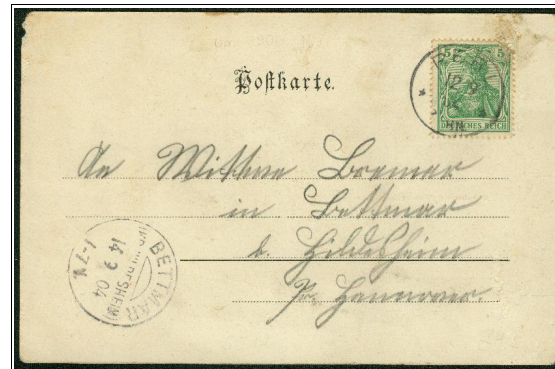 Postkarte.
5 5
DEUTSCHES REICH
An Wittwe Bremer
in Bettmar
b. Hildesheim
Pr. Hannover.
BETTMAR
14 9 04
1-7 N.
(HILDESHEIM)